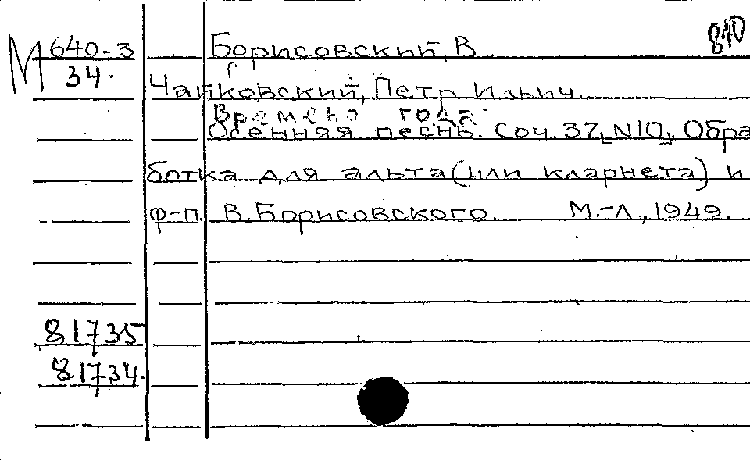 М 640-3 Борисовский, В 810
34.
Чайковский, Петр Ильич.
Времена года.
Осенняя песнь. Соч. 37, N10, Обра
ботка для альта (или кларнета) и
ф-п. В. Борисовского. М.-Л., 1949.
81735
81734.